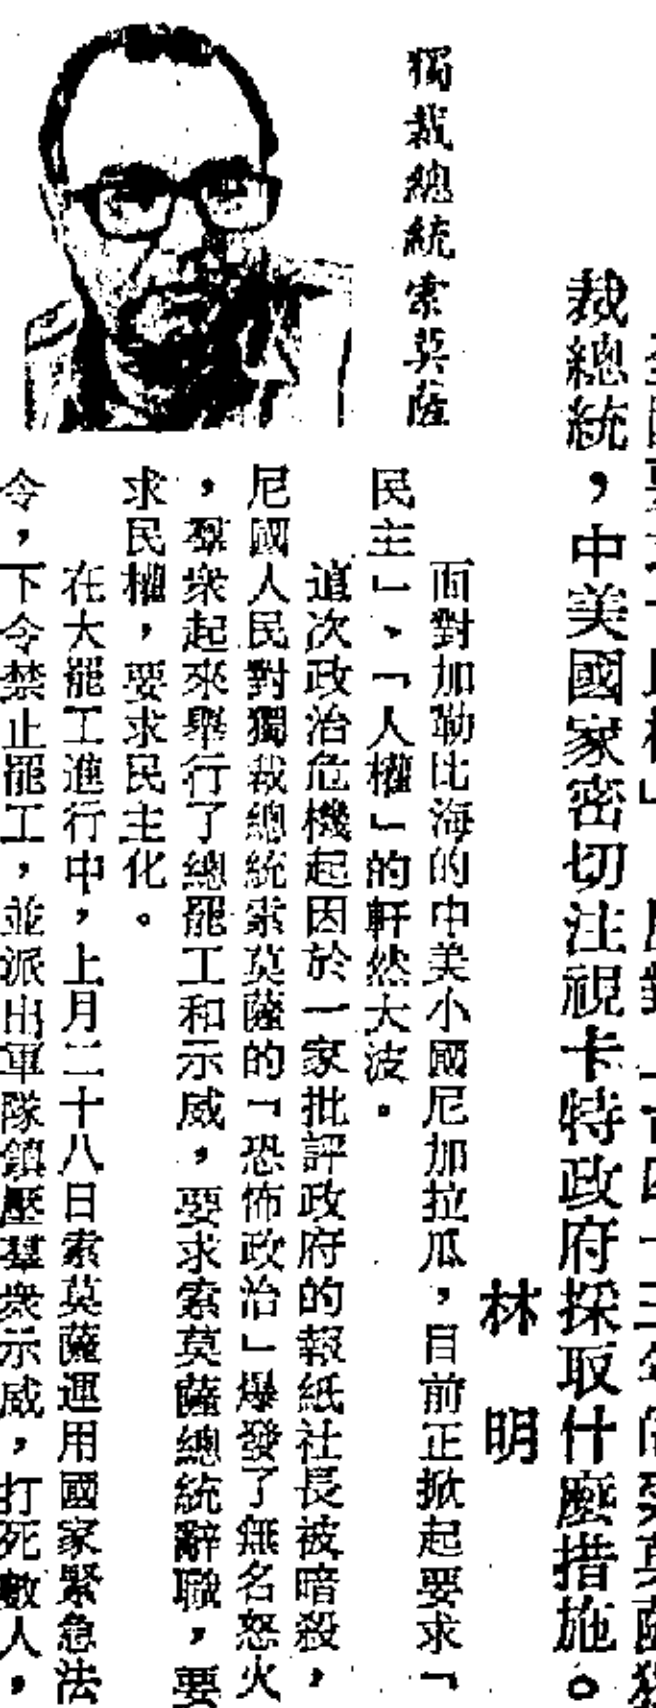 裁總統，中美國家密切注視卡特政府採取什麼措施。
林明
獨裁總統索莫薩
面對加勒比海的中美小國尼加拉瓜，目前正掀起要求「
民主」、「人權」的軒然大波。
這次政治危機起因於一家批評政府的報紙社長被暗殺，
尼國人民對獨裁總統索莫薩的「恐怖政治」爆發了無名怒火
，羣衆起來舉行了總罷工和示威，要求索莫薩總統辭職，要
求民權，要求民主化。
在大罷工進行中，上月二十八日索莫薩運用國家緊急法
令，下令禁止罷工，並派出軍隊鎮壓羣衆示威，打死數人，